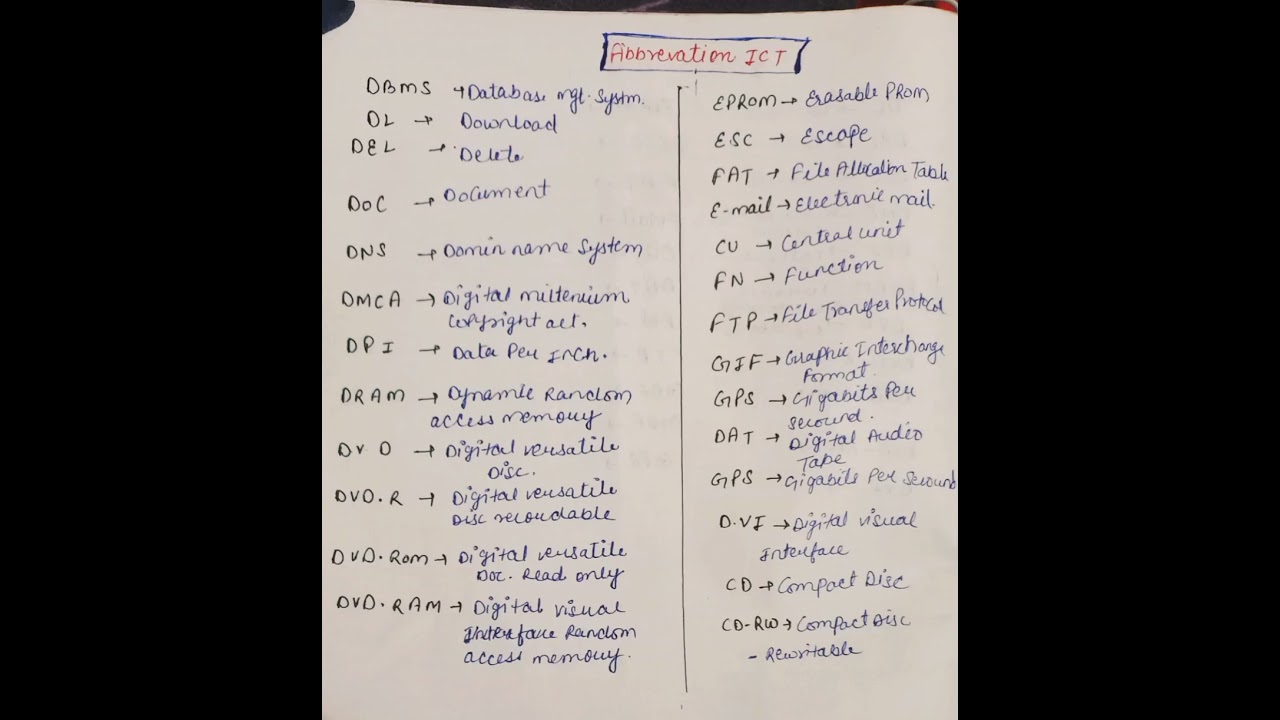 Abbrevation ICT
DBMS → Database mgt. System.
DL → Download
DEL → Delete
DOC → Document
DNS → Domin name System
DMCA → Digital millenium
copyright act.
DPI → Data Per Inch.
DRAM → Dynamic Random
access memory
DVD → Digital versatile
Disc.
DVD.R → Digital versatile
Disc recordable
DVD.Rom → Digital versatile
Doc. Read only
DVD.RAM → Digital visual
Interface Random
access memory.
EPROM → Erasable PROM
ESC → Escape
FAT → File Allocation Table
E-mail → Electronic mail.
CU → Central unit
FN → Function
FTP → File Transfer Protocol
GIF → Graphic Interchange
Format.
GPS → Gigabits Per
secound.
DAT → Digital Audio
Tape
GPS → Gigabits Per Secound
D.VI → Digital visual
Interface
CD → Compact Disc
CD-RW → Compact Disc
- Rewritable